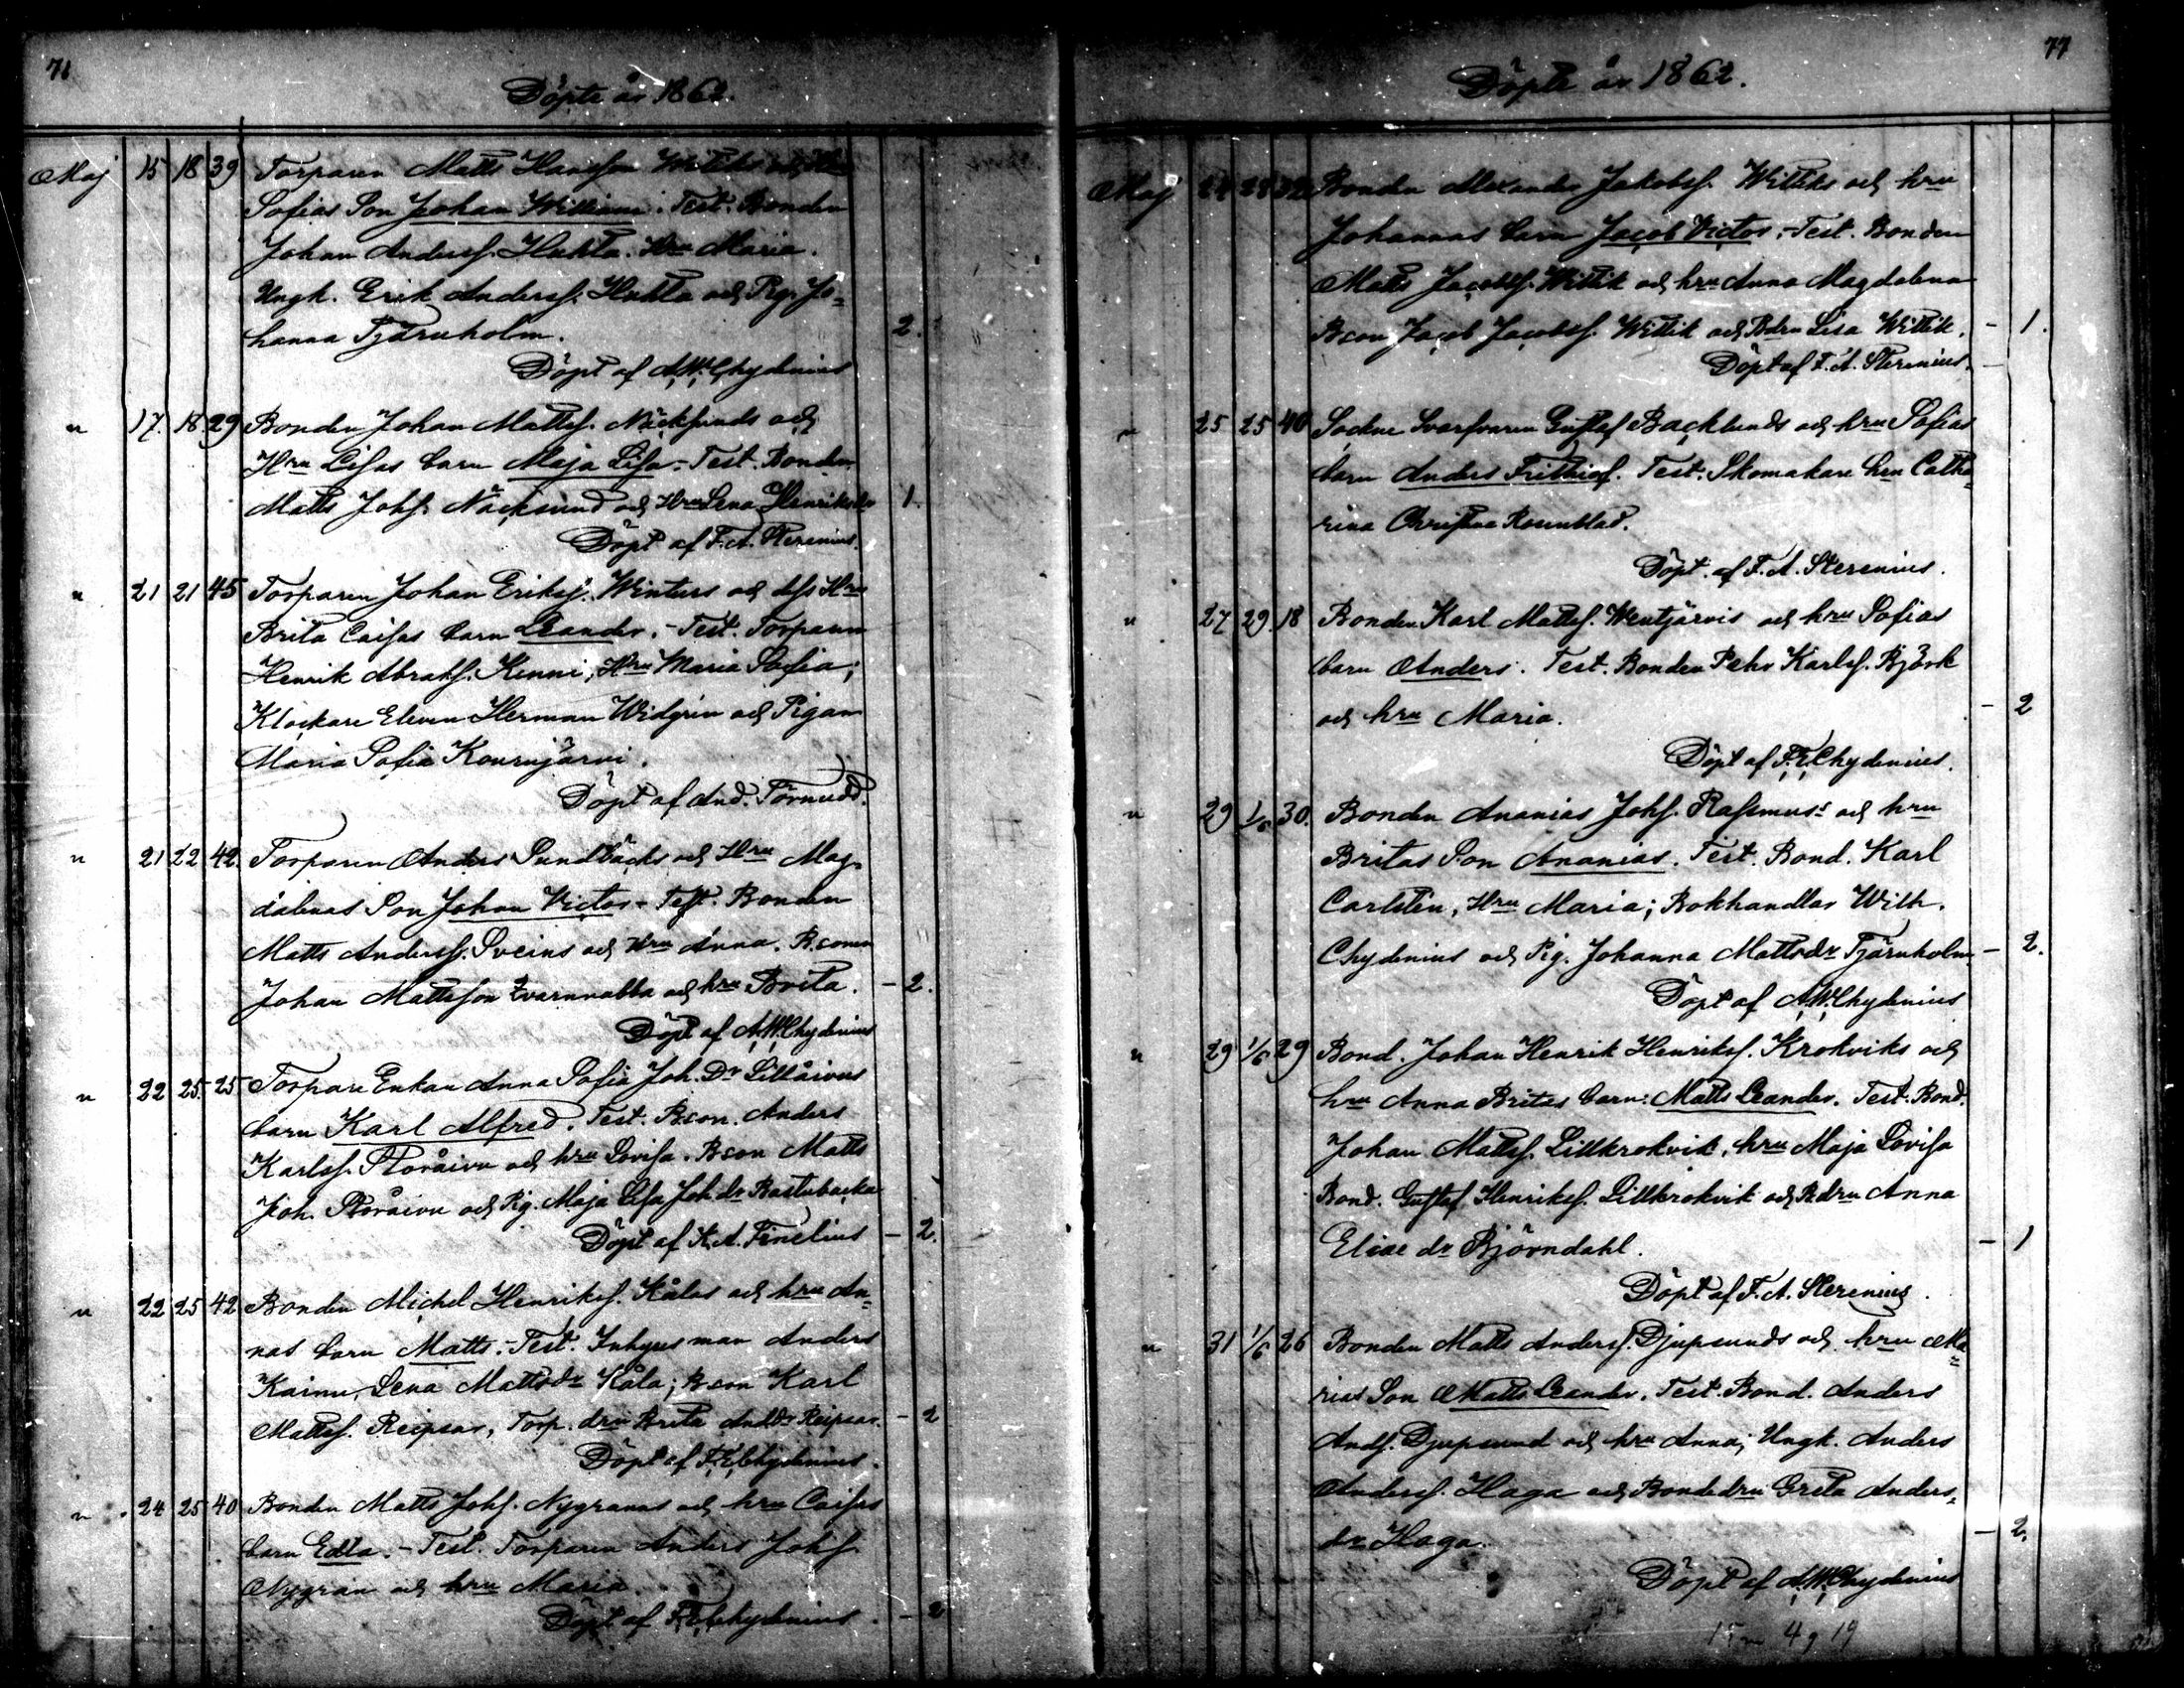 71
Döpte år 1862.
Maj 15 18 39 Torparen Matts Hansson
Sofias Son Johan William. Test. Bonden
Johan Anderss. Huhta. Hru Maria.
Ungk. Erik Anderss. Huhta och Pig. Jo-
hanna Tjärnholm. 2.
Döpt af A.W. Chydenius
" 17. 18. 29 Bonden Johan Matts. Näcksunds och
Hru Lisas barn Maja Lisa. - Test. Bonden
Matts Johs. Näcksund och Hru Lena Henriksdr 1.
Döpt af F.A. Sterenius.
" 21 21 45 Torparen Johan Eriks. Winters och dess Hru
Brita Caisas barn Leander. - Test. Torparen
Henrik Abrahs. Kenni, Hru Maria Sofia;
Klockare Eleven Herman Widgrén och Pigan
Maria Sofia Kournjärvi.
Döpt af And. Törnudd.
" 21 22 42 Torparen Anders Sundbäcks och Hru Mag-
dalenas Son Johan Victor - Test. Bonden
Matts Anderss. Sveins och Hru Anna. B.sonen
Johan Mattsson Qvarnnabba och hru Brita. - 2.
Döpt af A.W. Chydenius
" 22 25. 25 Torpare Enkan Anna Sofia Joh. Dr Lillåivus
barn Karl Alfred. Test. B.son. Anders
Karlss. Storåivu och hru Lovisa. B.son Matts
Joh. Storåivu och Pig. Maja Lisa Joh. dr Bastubacka
Döpt af K.A. Finelius - 2.
" 22 25 42 Bonden Michel Henrikss. Kålas och hru An-
nas barn Matts. - Test. Inhyses man Anders
Kainu, Lena Mattsdr Kåla; B.son Karl
Matts. Reipsar, Torp. dru Brita Anddr Reipsar. - 2
Döpt af F.E. Chydenius.
" 24 25 40 Bonden Matts Johs. Nygranas och hru Caisas
barn Edla. - Test. Torparen Anders Johs.
Nygran och hru Maria.
Döpt af F.E. Chydenius. - 2
77
Döpte år 1862.
Maj 24 28 32 Bonden Alexander Jakobss. Wittiks och hru
Johannas barn Jacob Victor. - Test. Bonden
Matts Jacobss. Wittik och hru Anna Magdalena
B.son Jacob Jacobss. Wittik och B.dru Lisa Wittik. - 1.
Döpt af F.A. Sterenius.
" 25 25 40 Sockne Svarfvaren Gustaf Backlunds och hru Sofias
barn Anders Frithiof. Test. Skomakare hru Catha-
rina Christina Rosenblad.
Döpt. af F.A. Sterenius.
" 27 29. 18 Bonden Karl Matts. Wentjärvis och hru Sofias
barn Anders. Test. Bonden Pehr Karlss. Björk
och hru Maria. - 2
Döpt af F.E. Chydenius.
" 29 1/6 30. Bonden Ananias Johs. Rasmus's och hru
Britas Son Ananias. Test. Bond. Karl
Carlstén, Hru Maria; Bokhandlar Wilh.
Chydenius och Pig. Johanna Mattsdr Tjärnholm. - 2.
Döpt af A.W. Chydenius
" 29 1/6 29 Bond. Johan Henrik Henrikss. Krokviks och
hru Anna Britas barn: Matts Leander. Test. Bond.
Johan Matts. Lillkrokvik, hru Maja Lovisa
Bond. Gustaf Henrikss. Lillkrokvik och B.dru Anna
Elise dr Björndahl. - 1
Döpt af F.A. Sterenius.
" 31 1/6 26 Bonden Matts Anderss. Djupsunds och hru Ma-
rias Son Matts Leander. Test. Bond. Anders
Ands. Djupsund och hru Anna; Ungk. Anders
Anderss. Haga och Bondedru Greta Anders-
dr Haga. - 2.
Döpt af A.W. Chydenius
15 m 4 q 19